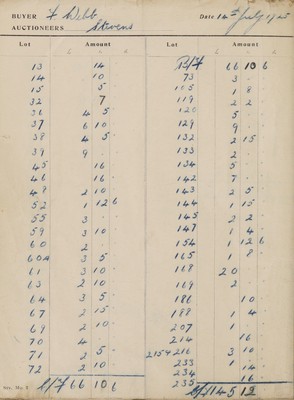 BUYER F Webb Date 14th July 1925
AUCTIONEERS Stevens
Lot Amount Lot Amount
13 14 B/F 66 10 6
14 10 73 3
15 5 105 1 8
32 7 119 2 2
36 4 5 120 5
37 6 10 129 9
38 4 5 132 2 15
39 9 133 2
45 16 134 5
46 16 142 7
48 2 10 143 2 5
52 1 12 6 144 1 15
55 3 145 2 2
59 3 10 147 1 4
60 2 154 1 12 6
60A 3 5 165 1 8
61 3 10 168 20
63 2 10 169 2
64 3 5 186 10
67 2 15 188 1 4
69 2 10 207 1
70 4 214 16
71 2 5 215+216 3 10
72 2 10 233 1 14
234 16
C/F 66 10 6 235